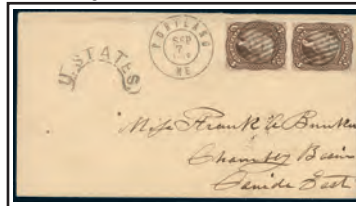 U. STATES
PORTLAND
SEP
7
ME
Miss Frank
Chambly Basin
Canada East